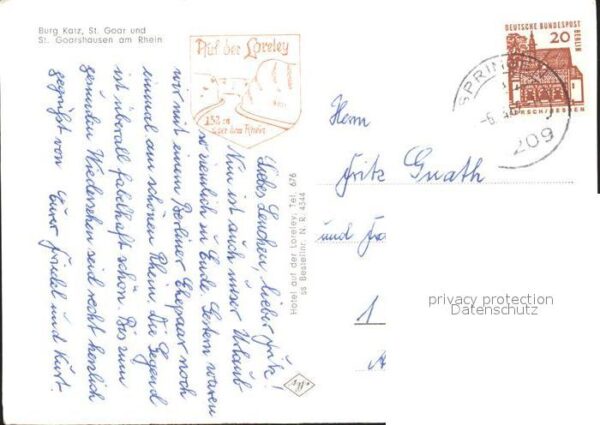 Burg Katz, St. Goar und
St. Goarshausen am Rhein
Auf der Loreley
132 m
über dem Rhein
DEUTSCHE BUNDESPOST
BERLIN
20
LORSCH/HESSEN
SPRIN
209
Liebes Lenchen, lieber Fritz!
Nun ist auch unser Urlaub
so ziemlich zu Ende. Gestern waren
wir mit einem Berliner Ehepaar noch
einmal am schönen Rhein. Die Gegend
ist überall fabelhaft schön. Bis zum
gesunden Wiedersehen seid recht herzlich
gegrüßt von Eurer Friedel und Kurt.
Hotel auf der Loreley, Tel. 676
ss Bestellnr. N. R. 4344
Herrn
Fritz Gnath
und
1
privacy protection
Datenschutz